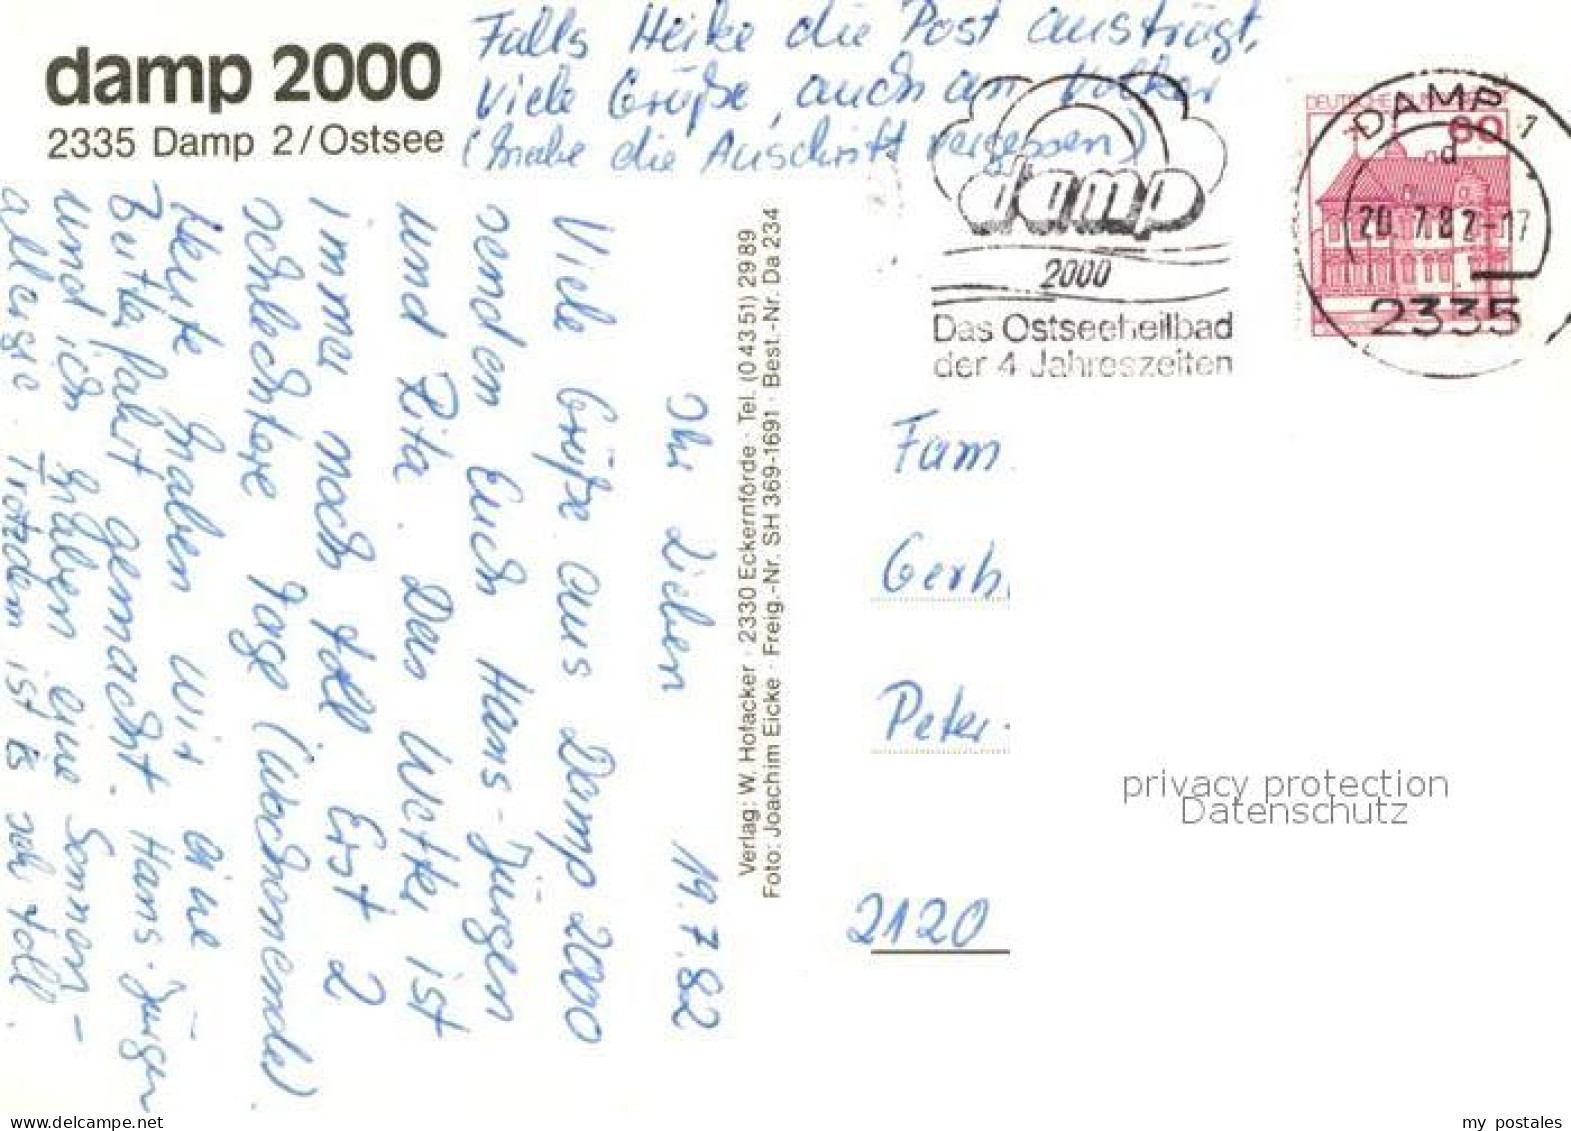 damp 2000
2335 Damp 2/Ostsee
Falls Heike die Post austrägt,
viele Grüße, auch an Volker
(habe die Anschrift vergessen)
damp
2000
Das Ostseeheilbad
der 4 Jahreszeiten
DEUTSCHE
60
DAMP
d
20.7.82-17
2335
Ihr Lieben 19.7.82
Viele Grüße aus Damp 2000
senden Euch Hans-Jürgen
und Rita. Das Wetter ist
immer noch toll. Erst 2
schlechtere Tage (Wochenende)
Heute haben wir eine
Butterfahrt gemacht. Hans-Jürgen
und ich haben eine Sonnen-
allergie. Trotzdem ist es sehr toll.
Verlag: W. Hofacker · 2330 Eckernförde · Tel. (0 43 51) 29 89
Foto: Joachim Eicke · Freig.-Nr. SH 369-1691 · Best.-Nr. Da 234
Fam.
Gerh
Peter-
2120
privacy protection
Datenschutz
delcampe.net
my_postales